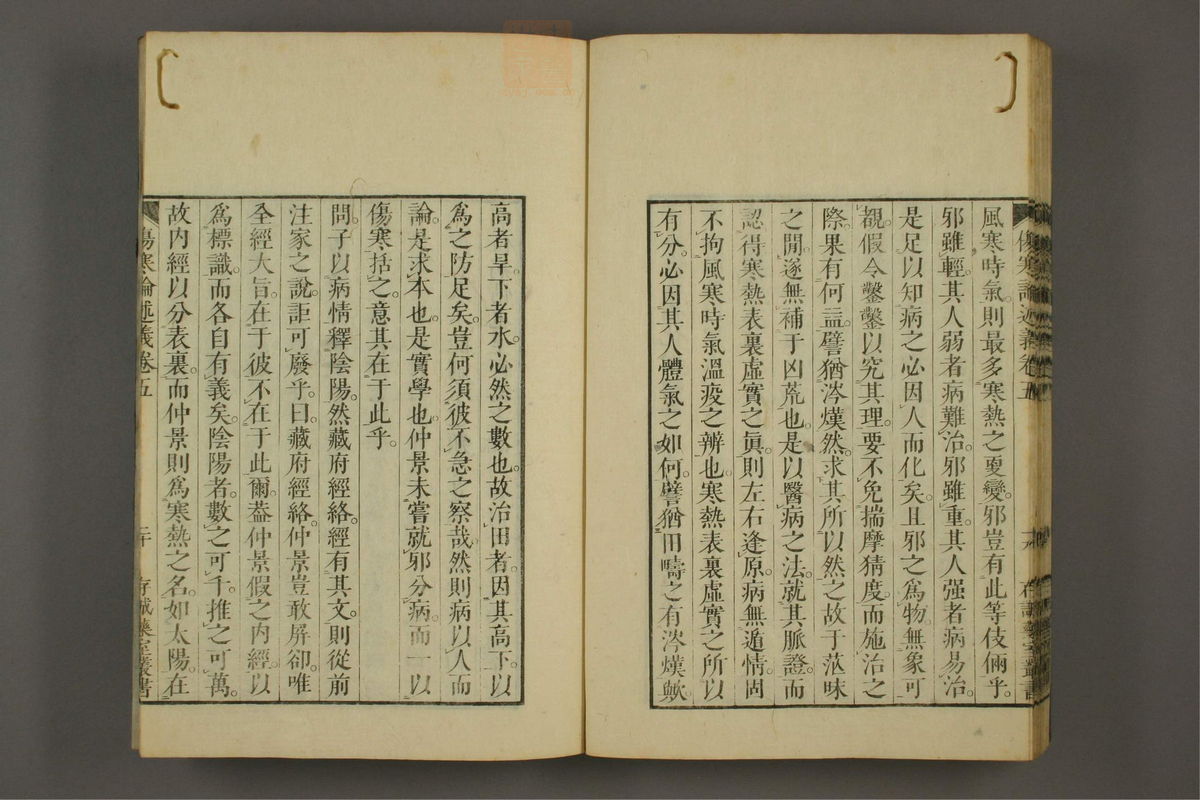 傷寒論述義卷五
風寒時氣則最多寒熱之夏變。邪豈有此等伎倆乎。
邪雖輕。其人弱者病難治。邪雖重。其人强者病易治。
是足以知病之必因人而化矣。且邪之爲物。無象可
覩。假令鑿鑿以究其理。要不免揣摩猜度。而施治之
際。果有何益。譬猶涔熯。然求其所以然之故于茫昧
之閒。遂無補于凶荒也。是以醫病之法。就其脈證。而
認得寒熱表裏虛實之眞。則左右逢原。病無遁情。固
不拘風寒時氣溫疫之辨也。寒熱表裏虛實之所以
有分。必因其人體氣之如何。譬猶田疇之有涔熯歟。
高者旱。下者水。必然之數也。故治田者。因其高下。以
爲之防足矣。豈何須彼不急之察哉。然則病以人而
論。是求本也。是實學也。仲景未嘗就邪分病。而一以
傷寒括之。意其在于此乎。
問子以病情釋陰陽。然藏府經絡。經有其文。則從前
注家之說。詎可廢乎。曰。藏府經絡。仲景豈敢屏卻。唯
全經大旨。在于彼不在于此爾。葢仲景假之內經。以
爲標識。而各自有義矣。陰陽者。數之可千。推之可萬。
故內經以分表裏。而仲景則爲寒熱之名。如太陽。在
傷寒論述義卷五
二十
存誠藥室叢書